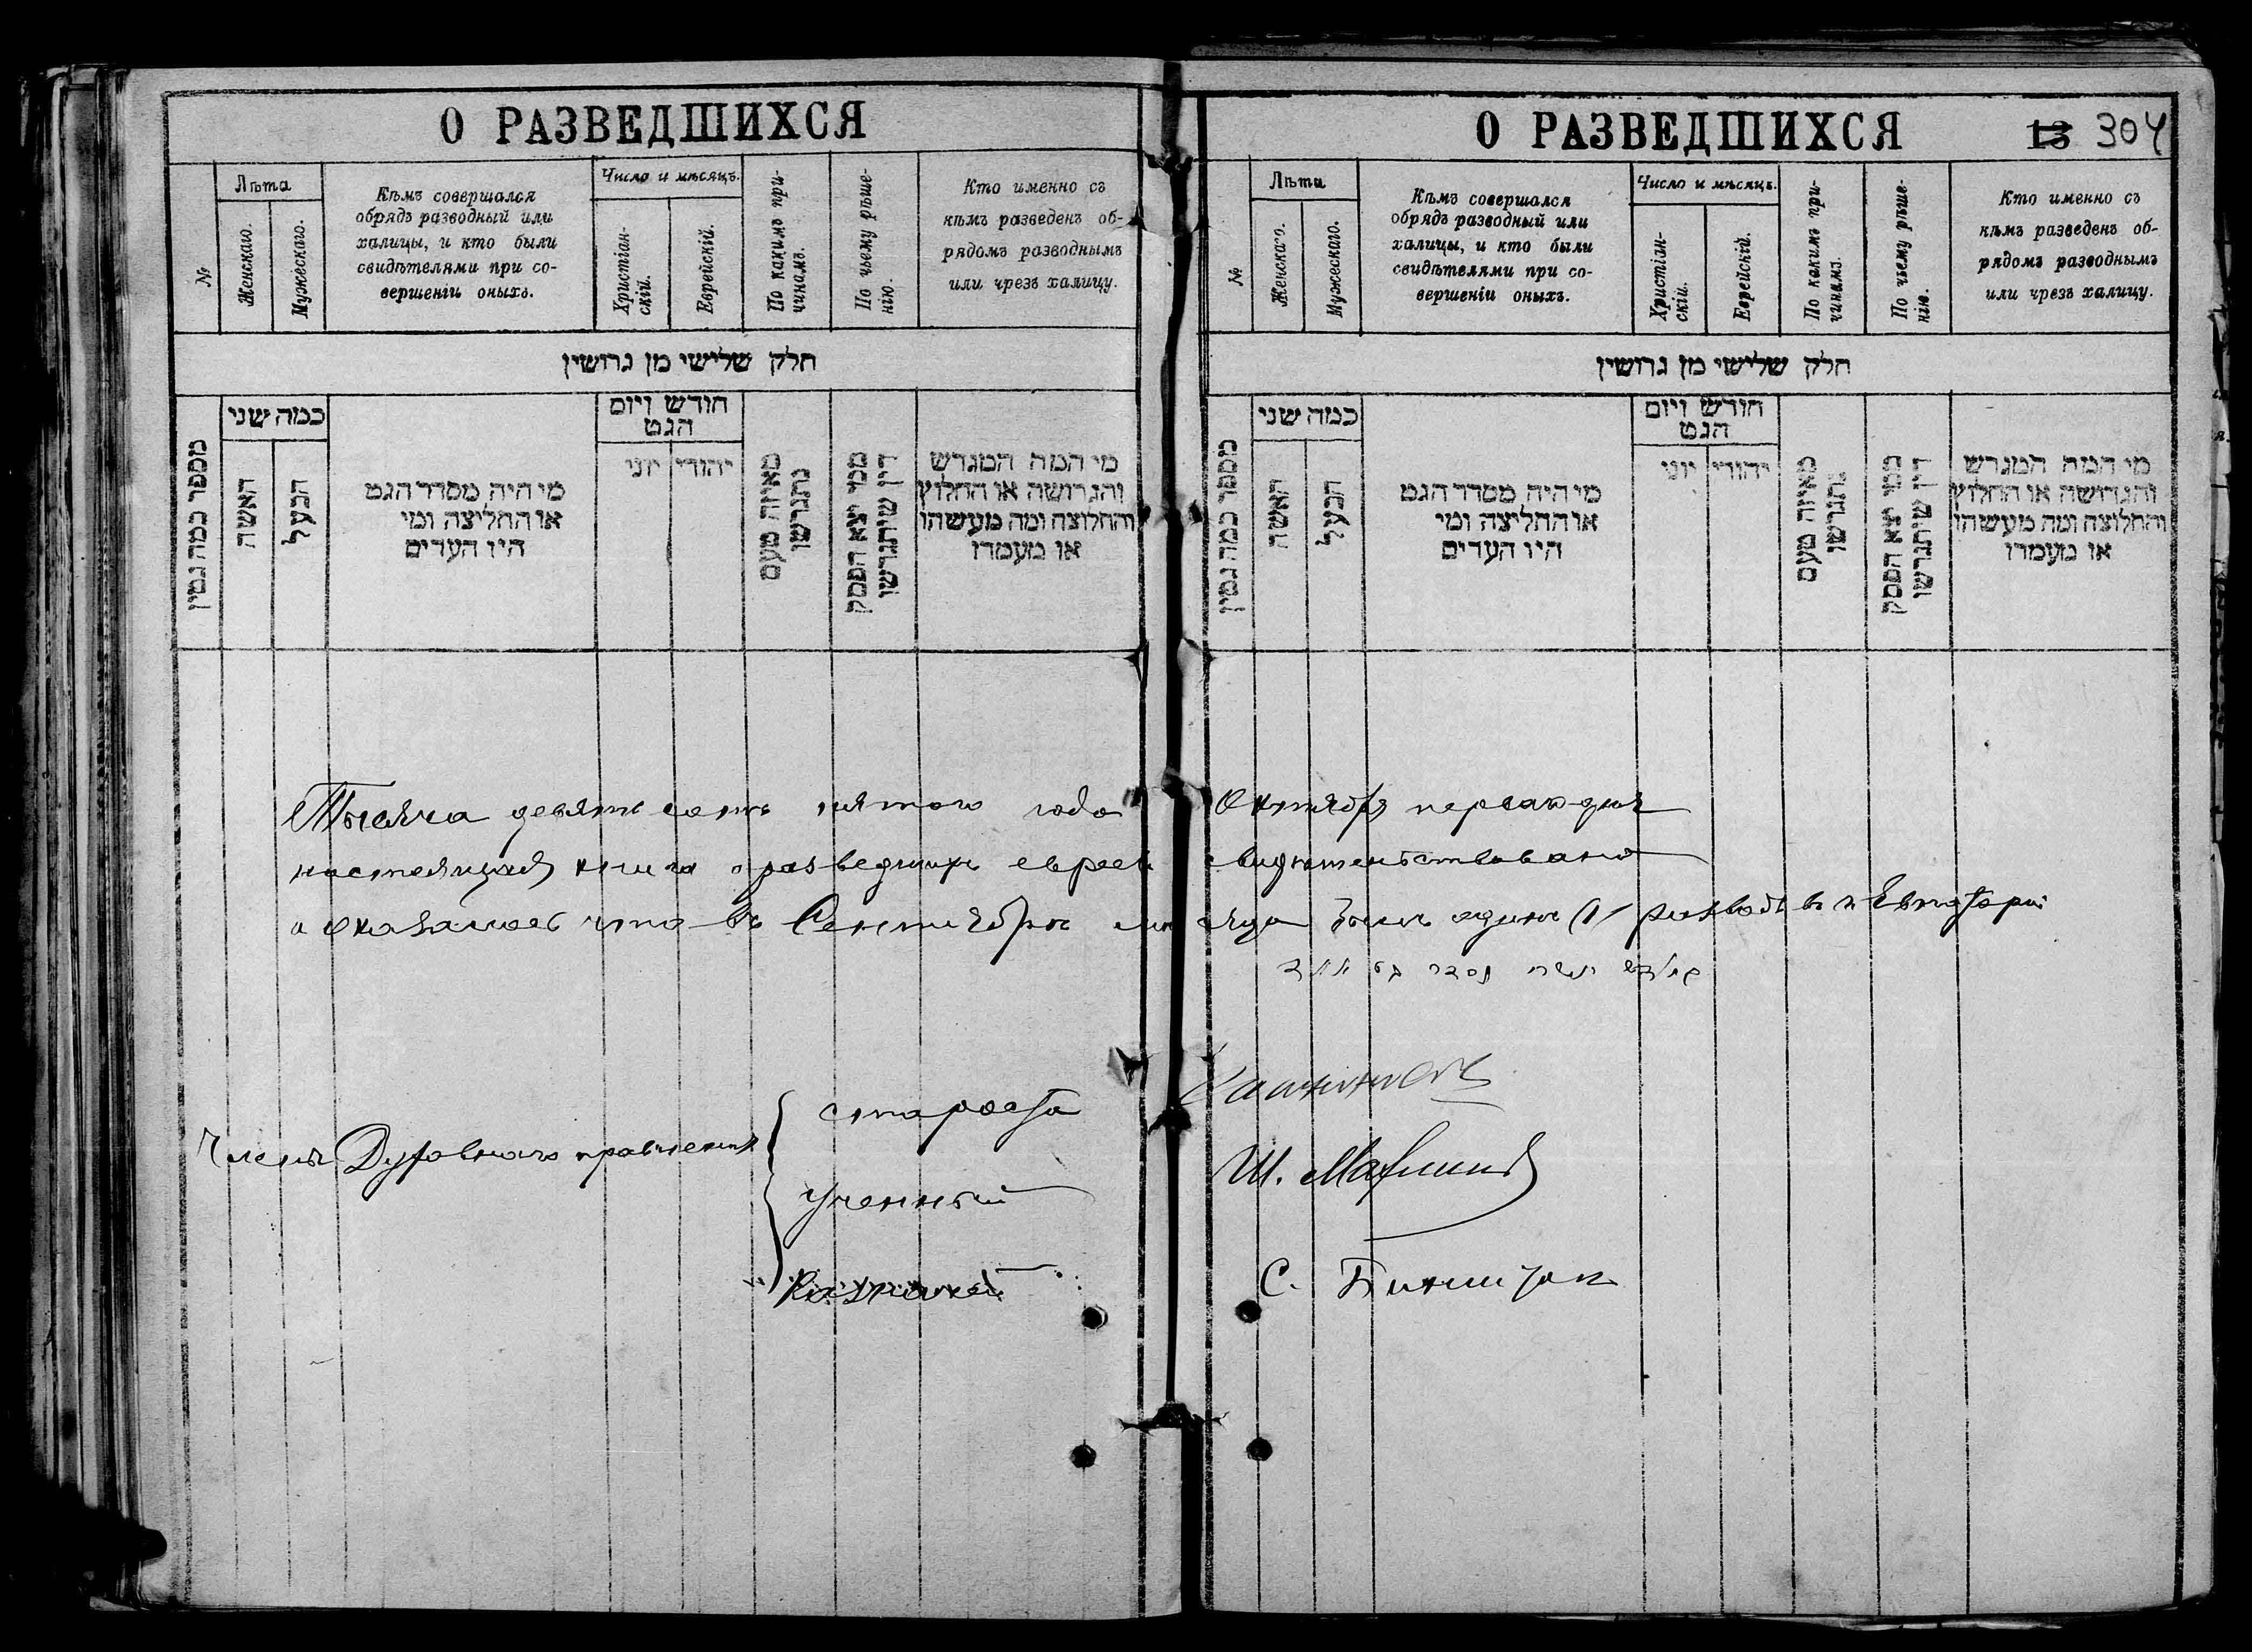 О РАЗВЕДШИХСЯ
№
Лѣта
Женскаго.
Мужескаго.
Кѣмъ совершался
обрядъ разводный или
халицы, и кто были
свидѣтелями при со-
вершеніи оныхъ.
Число и мѣсяцъ.
Христіан-
скій.
Еврейскій.
По какимъ при-
чинамъ.
По чьему рѣше-
нію.
Кто именно съ
кѣмъ разведенъ об-
рядомъ разводнымъ
или чрезъ халицу.
חלק שלישי מן גרושין
מספר כמה גטין
כמה שני
האשה
הבעל
מי היה מסדר הגט
או החליצה ומי
היו העדים
חודש ויום
הגט
יהודי
יוני
מאיזה טעם
נתגרשו
ממי יצא הפסק
דין שיתגרשו
מי המה המגרש
והגרושה או החלוץ
והחלוצה ומה מעשהו
או מעמדו
О РАЗВЕДШИХСЯ
13 304
№
Лѣта
Женскаго.
Мужескаго.
Кѣмъ совершался
обрядъ разводный или
халицы, и кто были
свидѣтелями при со-
вершеніи оныхъ.
Число и мѣсяцъ.
Христіан-
скій.
Еврейскій.
По какимъ при-
чинамъ.
По чьему рѣше-
нію.
Кто именно съ
кѣмъ разведенъ об-
рядомъ разводнымъ
или чрезъ халицу.
חלק שלישי מן גרושין
מספר כמה גטין
כמה שני
האשה
הבעל
מי היה מסדר הגט
או החליצה ומי
היו העדים
חודש ויום
הגט
יהודי
יוני
מאיזה טעם
נתגרשו
ממי יצא הפסק
דין שיתגרשו
מי המה המגרש
והגרושה או החלוץ
והחלוצה ומה מעשהו
או מעמדו
Тысяча девятьсотъ пятого года Октября перваго дня
настоящая книга о разведшихъ евреевъ свидѣтельствована
и оказалось что въ Сентябрѣ мѣсяца былъ одинъ (1) разводъ въ г. Евпаторіи
Члены Духовнаго правленія
староста
Ученный
Казначей
Ш. Махлинъ
С.